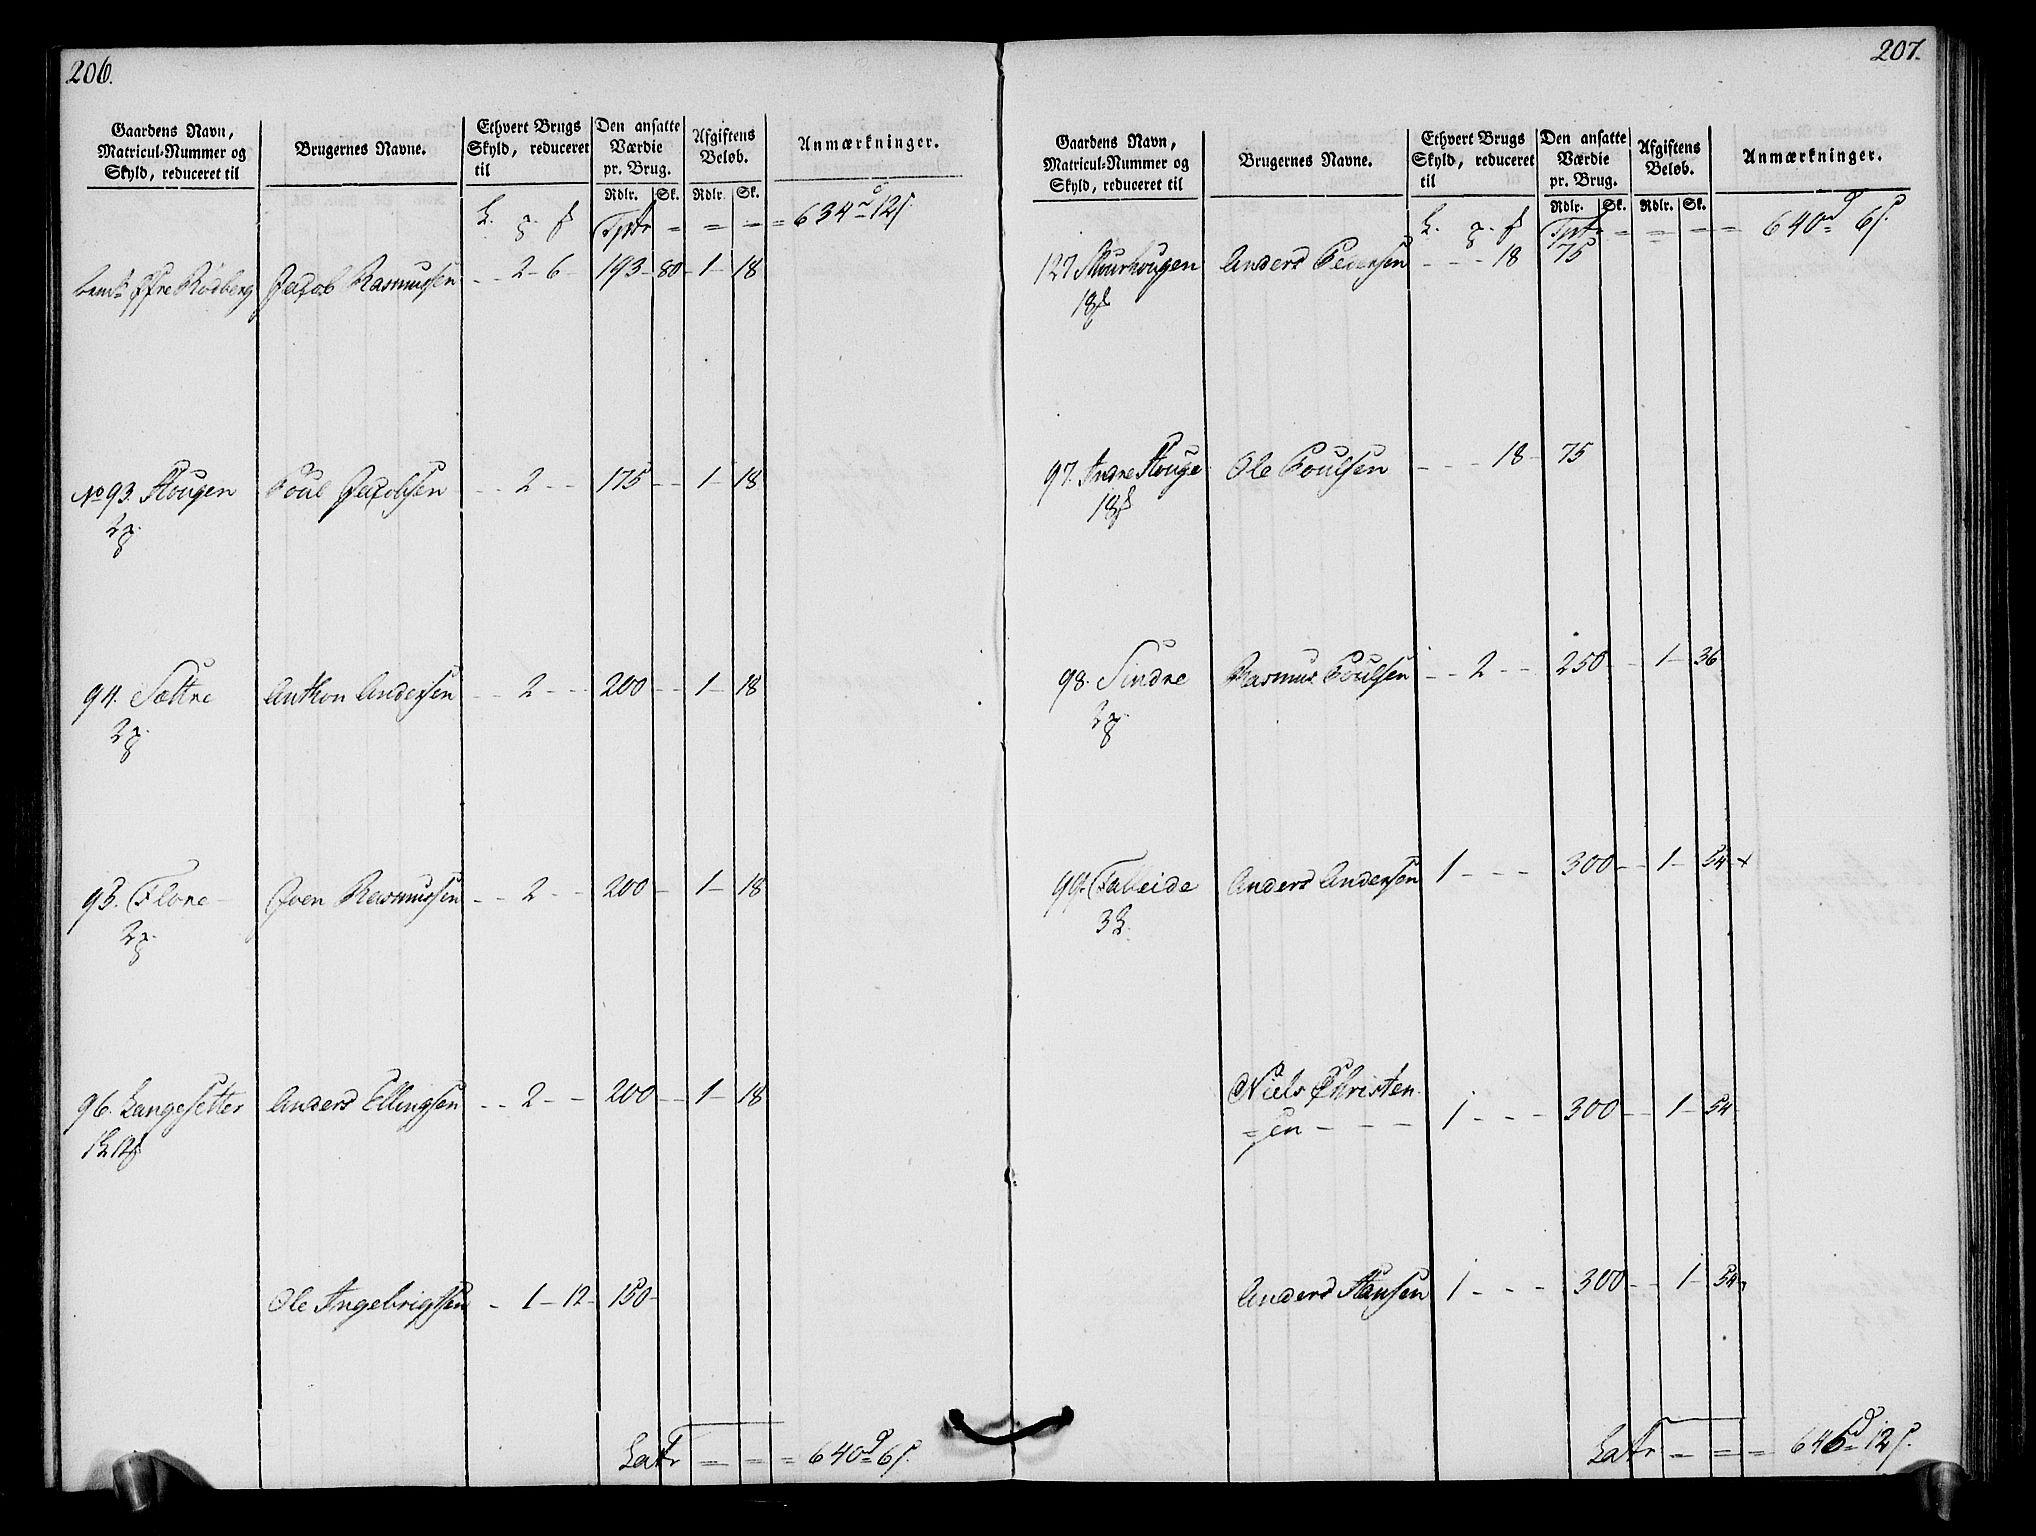 206.
Gaardens Navn, Matricul-Nummer og Skyld, reduceret til
Brugernes Navne.
Ethvert Brugs Skyld, reduceret til
Den ansatte Værdie pr. Brug.
Rdlr. Sk.
Afgiftens Beløb.
Rdlr. Sk.
Anmærkninger.
Tpt = = = = 634 d 12 s.
Øfre Rødberg Jacob Rasmussen - - 2 - 6 - 193 - 80 - 1 - 18
No 93. Hougen Poul Jacobsen - - 2 - - 175 - - 1 - 18
2
94. Sættre Anthon Andersen - - 2 - - 200 - - 1 - 18
2
95. Flore - Iven Rasmussen - - 2 - - 200 - 1 - 18
2
96. Langesetter Anders Ellingsen - - 2 - - 200 - - 1 - 18
Ole Ingebrigtsen - 1 - 12 - 150 -
Latr = = = 640 d 6 s.
207.
Gaardens Navn, Matricul-Nummer og Skyld, reduceret til
Brugernes Navne.
Ethvert Brugs Skyld, reduceret til
Den ansatte Værdie pr. Brug.
Rdlr. Sk.
Afgiftens Beløb.
Rdlr. Sk.
Anmærkninger.
Tpt = = = = 640 d 6 s.
127 Muurhougen Anders Pedersen - - - 18 75
18
97. Indre Houge Ole Poulsen - - - 18 - 75
18
98. Sindre Rasmus Poulsen - - 2 - - 250 - - 1 - 36
2
99. Falleide Anders Andersen 1 - - - 300 - - 1 - 54
3
Niels Christen
= sen - - - 1 - - - 300 - - 1 - 54
Anders Hansen 1 - - - 300 - - 1 - 54
Latr = = = 646 d 12 s.